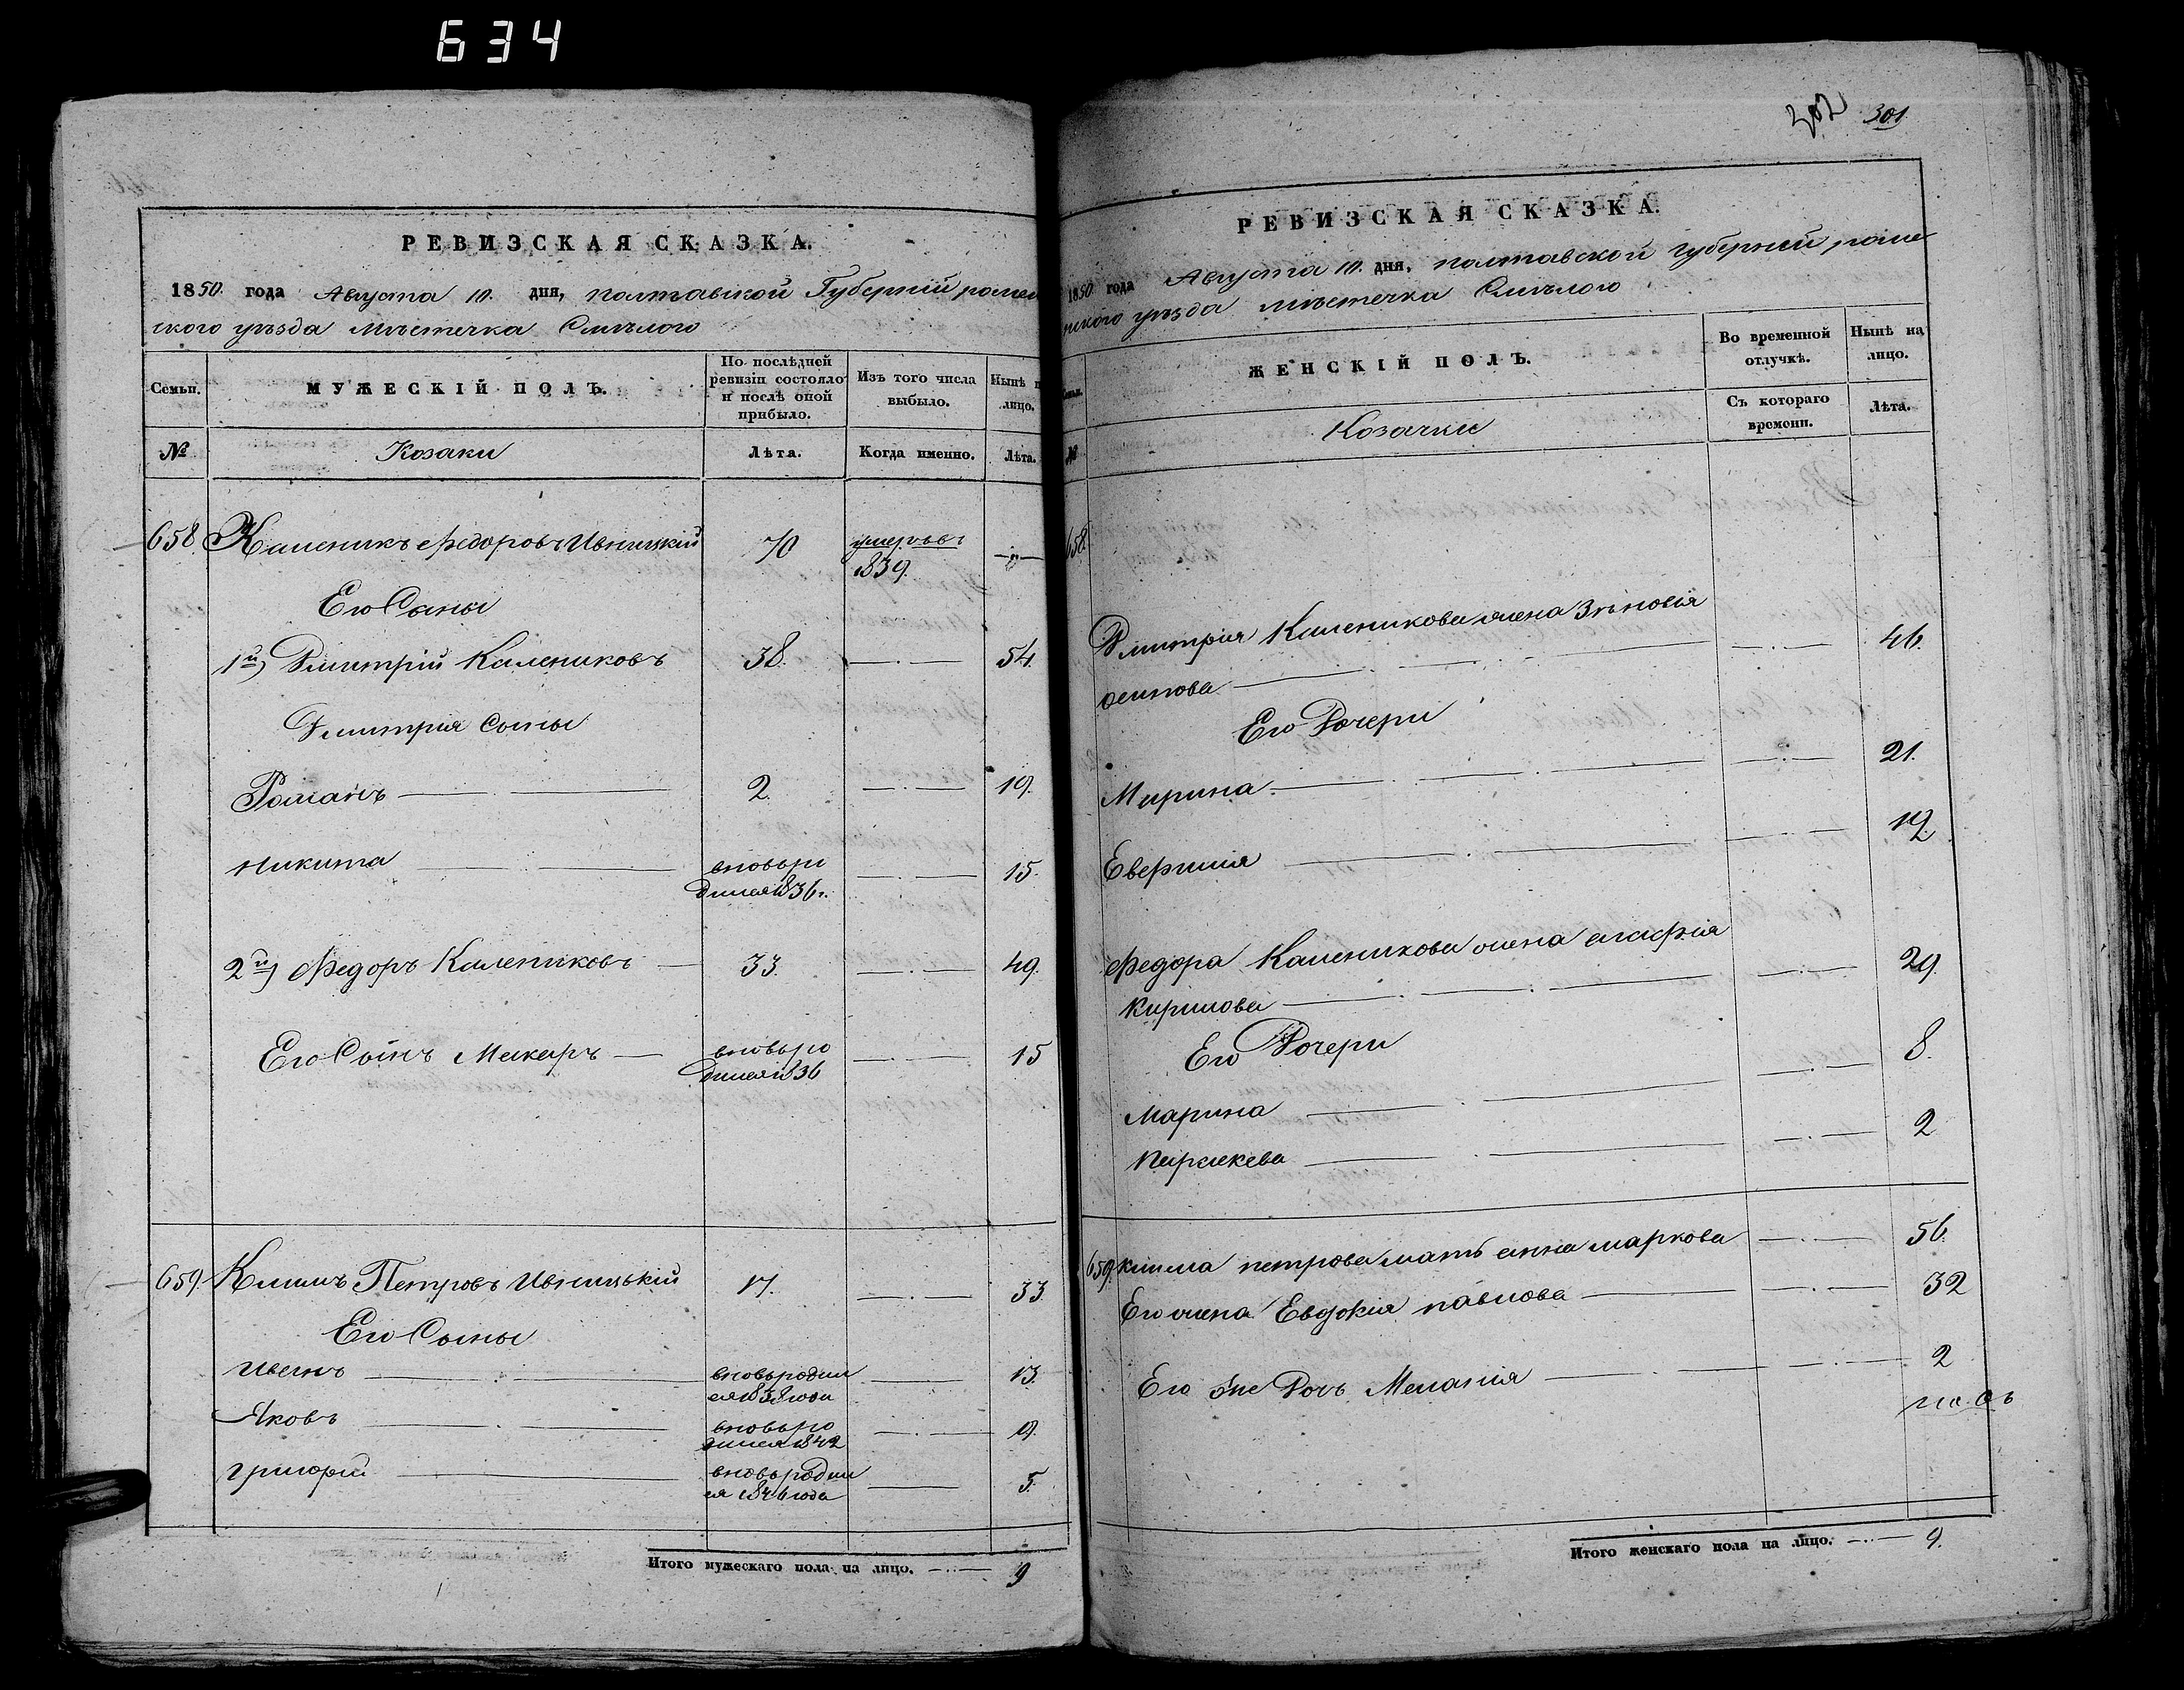 634
РЕВИЗСКАЯ СКАЗКА.
1850. года Августа 10. дня, полтавской Губерній ромен
ского уѣзда мѣстечка Смѣлого
Семьи. МУЖЕСКІЙ ПОЛЪ. По послѣдней ревизіи состояло и послѣ оной прибыло. Изъ того числа выбыло. Нынѣ н лицо.
№ Козаки Лѣта. Когда именно. Лѣта.
658. Каленикъ Федоровъ Ивницкій 70 умеръ въ 1839.
Его Сыны
1й) Дмитрій Калениковъ 38. 54.
Дмитрія сыны
Романъ 2. 19.
Никита вновь ро
дился 1836 г. 15.
2й) Федоръ Калениковъ 33. 49.
Его Сынъ Макаръ вновь ро
дился 1836 15
659. Климъ Петровъ Ивницькій 17. 33.
Его Сыны
Иванъ вновь родил
ся 1838 года 13.
Яковъ вновь ро
дился 1842 9.
григорій вновь родил
ся 1846 года 5.
Итого мужескаго пола на лицо. 9
302 301
РЕВИЗСКАЯ СКАЗКА.
1850 года Августа 10. дня, полтавской губерній роме
нского уѣзда мѣстечка Смѣлого
Семьи. ЖЕНСКІЙ ПОЛЪ. Во временной отлучкѣ. Нынѣ на лицо.
№ Козачки Съ котораго времени. Лѣта.
658.
Дмитрія Каленикова жена Зѣновія
осипова 46.
Его Дочери
Марина 21.
Евгришія 19.
Федора Каленикова жена агафія
Кирилова 29.
Его Дочери
Марина 8.
Параскева 2
659. клима петрова мать анна маркова 56.
Его жена Евдокія павлова 32
Его же Дочь Меланія 2
Итого женскаго пола на лицо. 9.